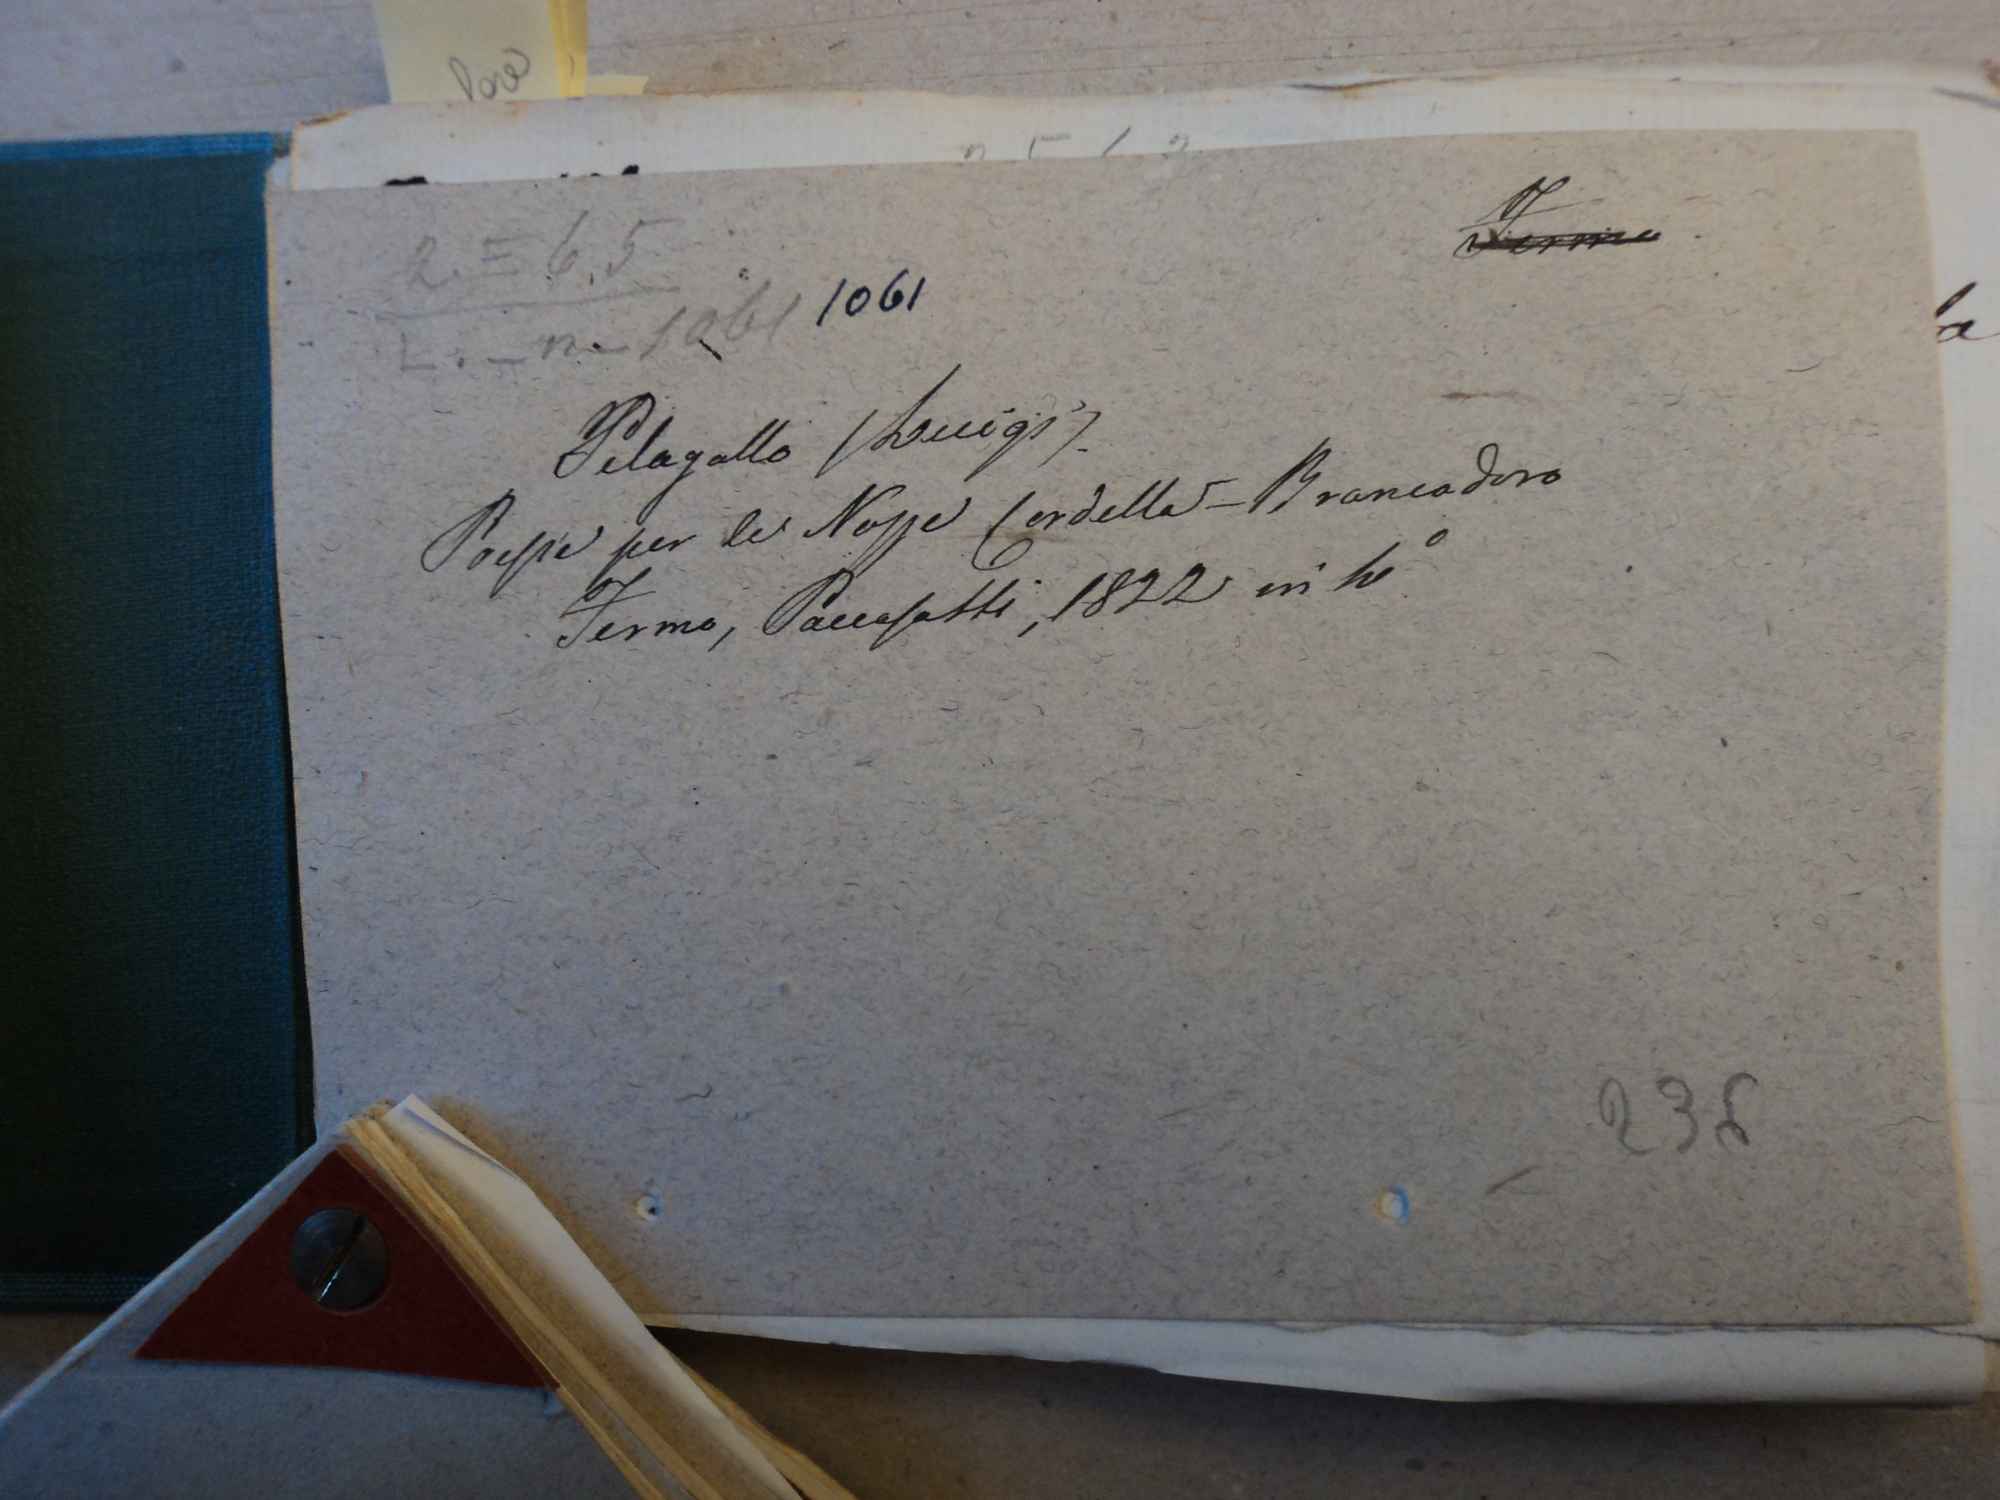 Fermo
2. = 6.5
L. - n. 1061 1061
Pelagallo (Luigi).
Poesie per le Nozze Cordella - Brancadoro
Fermo, Paccasassi, 1822 in 4°
236